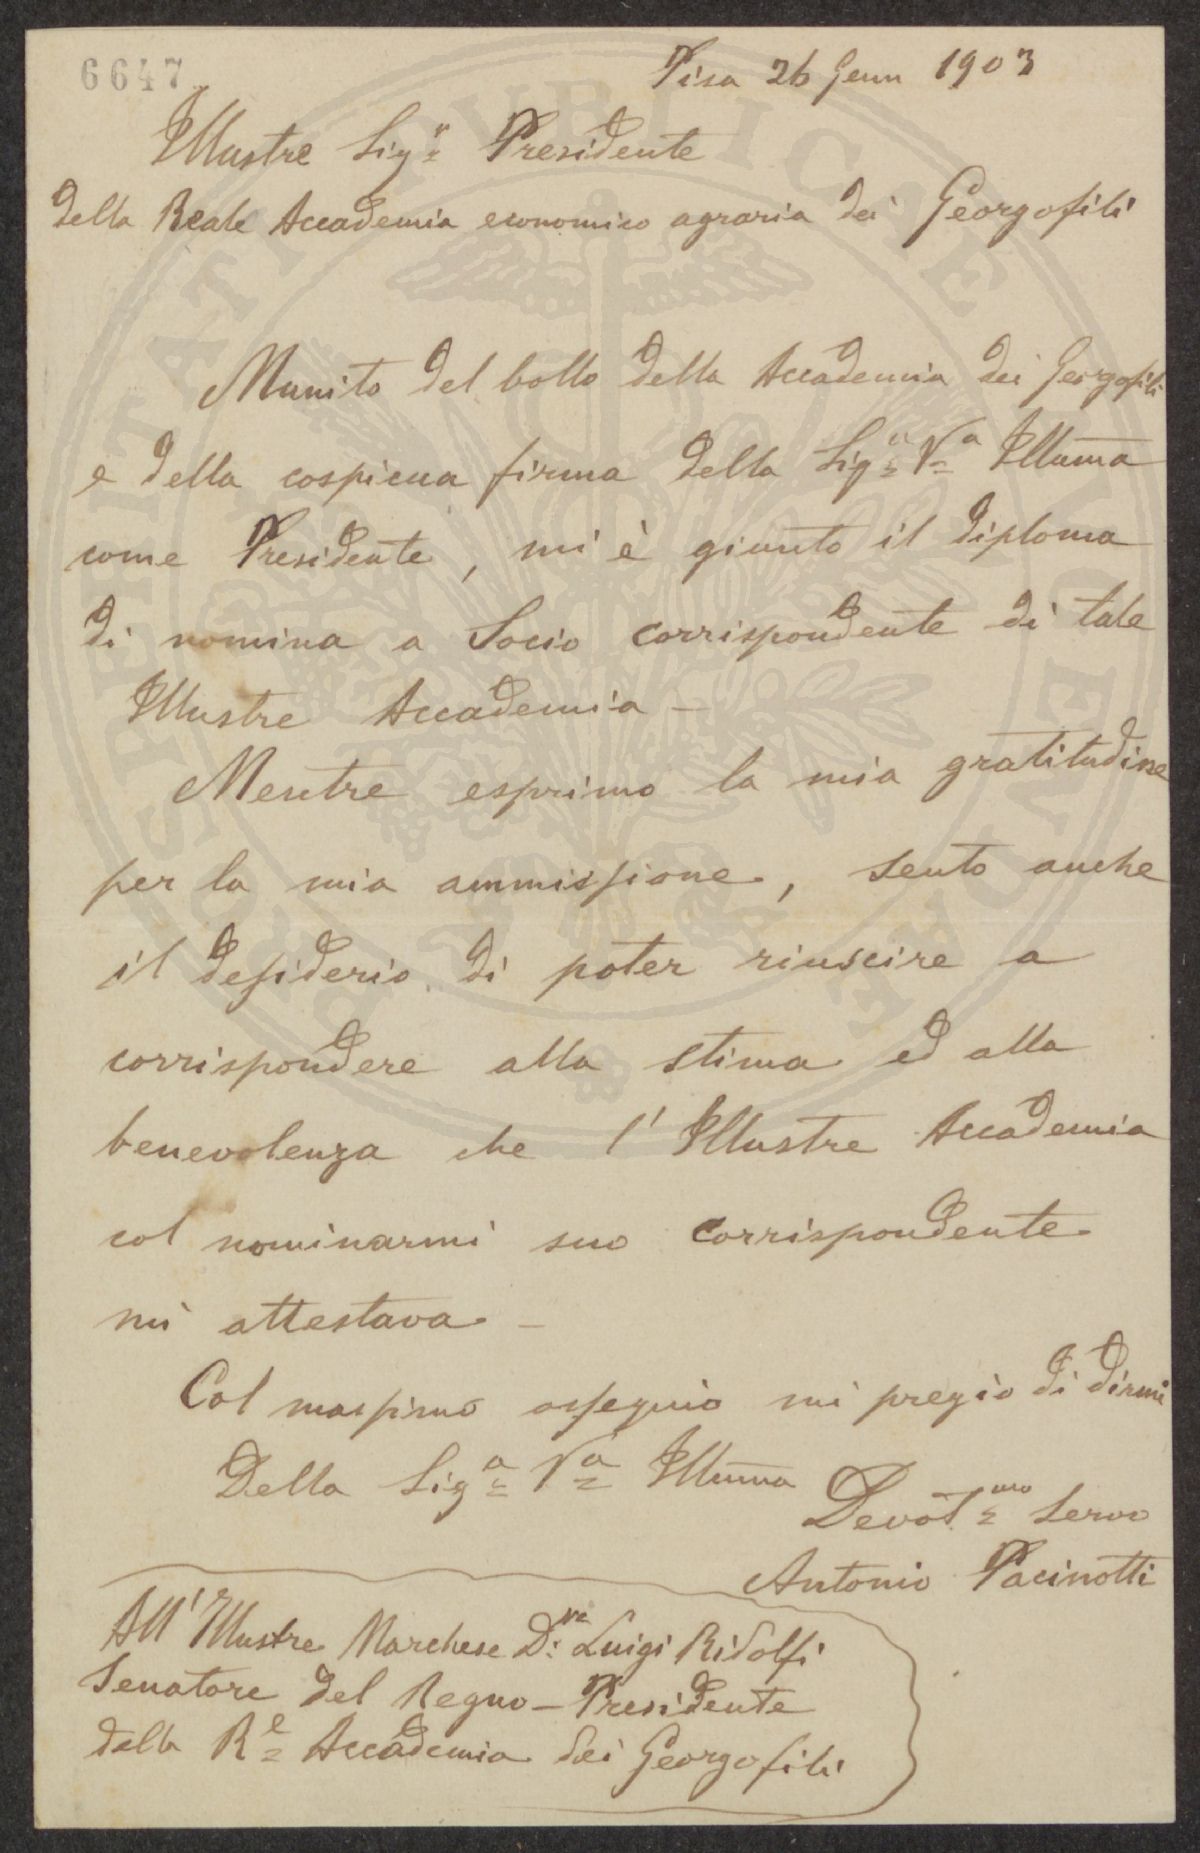 6647
Pisa 26 Genn 1903
Illustre Sigr Presidente
della Reale Accademia economico agraria dei Georgofili
Munito del bollo della Accademia dei Georgofili
e della cospicua firma della Siga Va Illuma
come Presidente, mi è giunto il diploma
di nomina a Socio corrispondente di tale
Illustre Accademia -
Mentre esprimo la mia gratitudine
per la mia ammissione, sento anche
il desiderio di poter riuscire a
corrispondere alla stima ed alla
benevolenza che l'Illustre Accademia
col nominarmi suo corrispondente
mi attestava -
Col massimo ossequio mi pregio di dirmi
Della Siga Va Illuma
Devotmo Servo
Antonio Pacinotti
All'Illustre Marchese D. Luigi Ridolfi
Senatore del Regno - Presidente
della Re Accademia dei Georgofili
PROSPERITATI PVBLICAE AVGENDAE